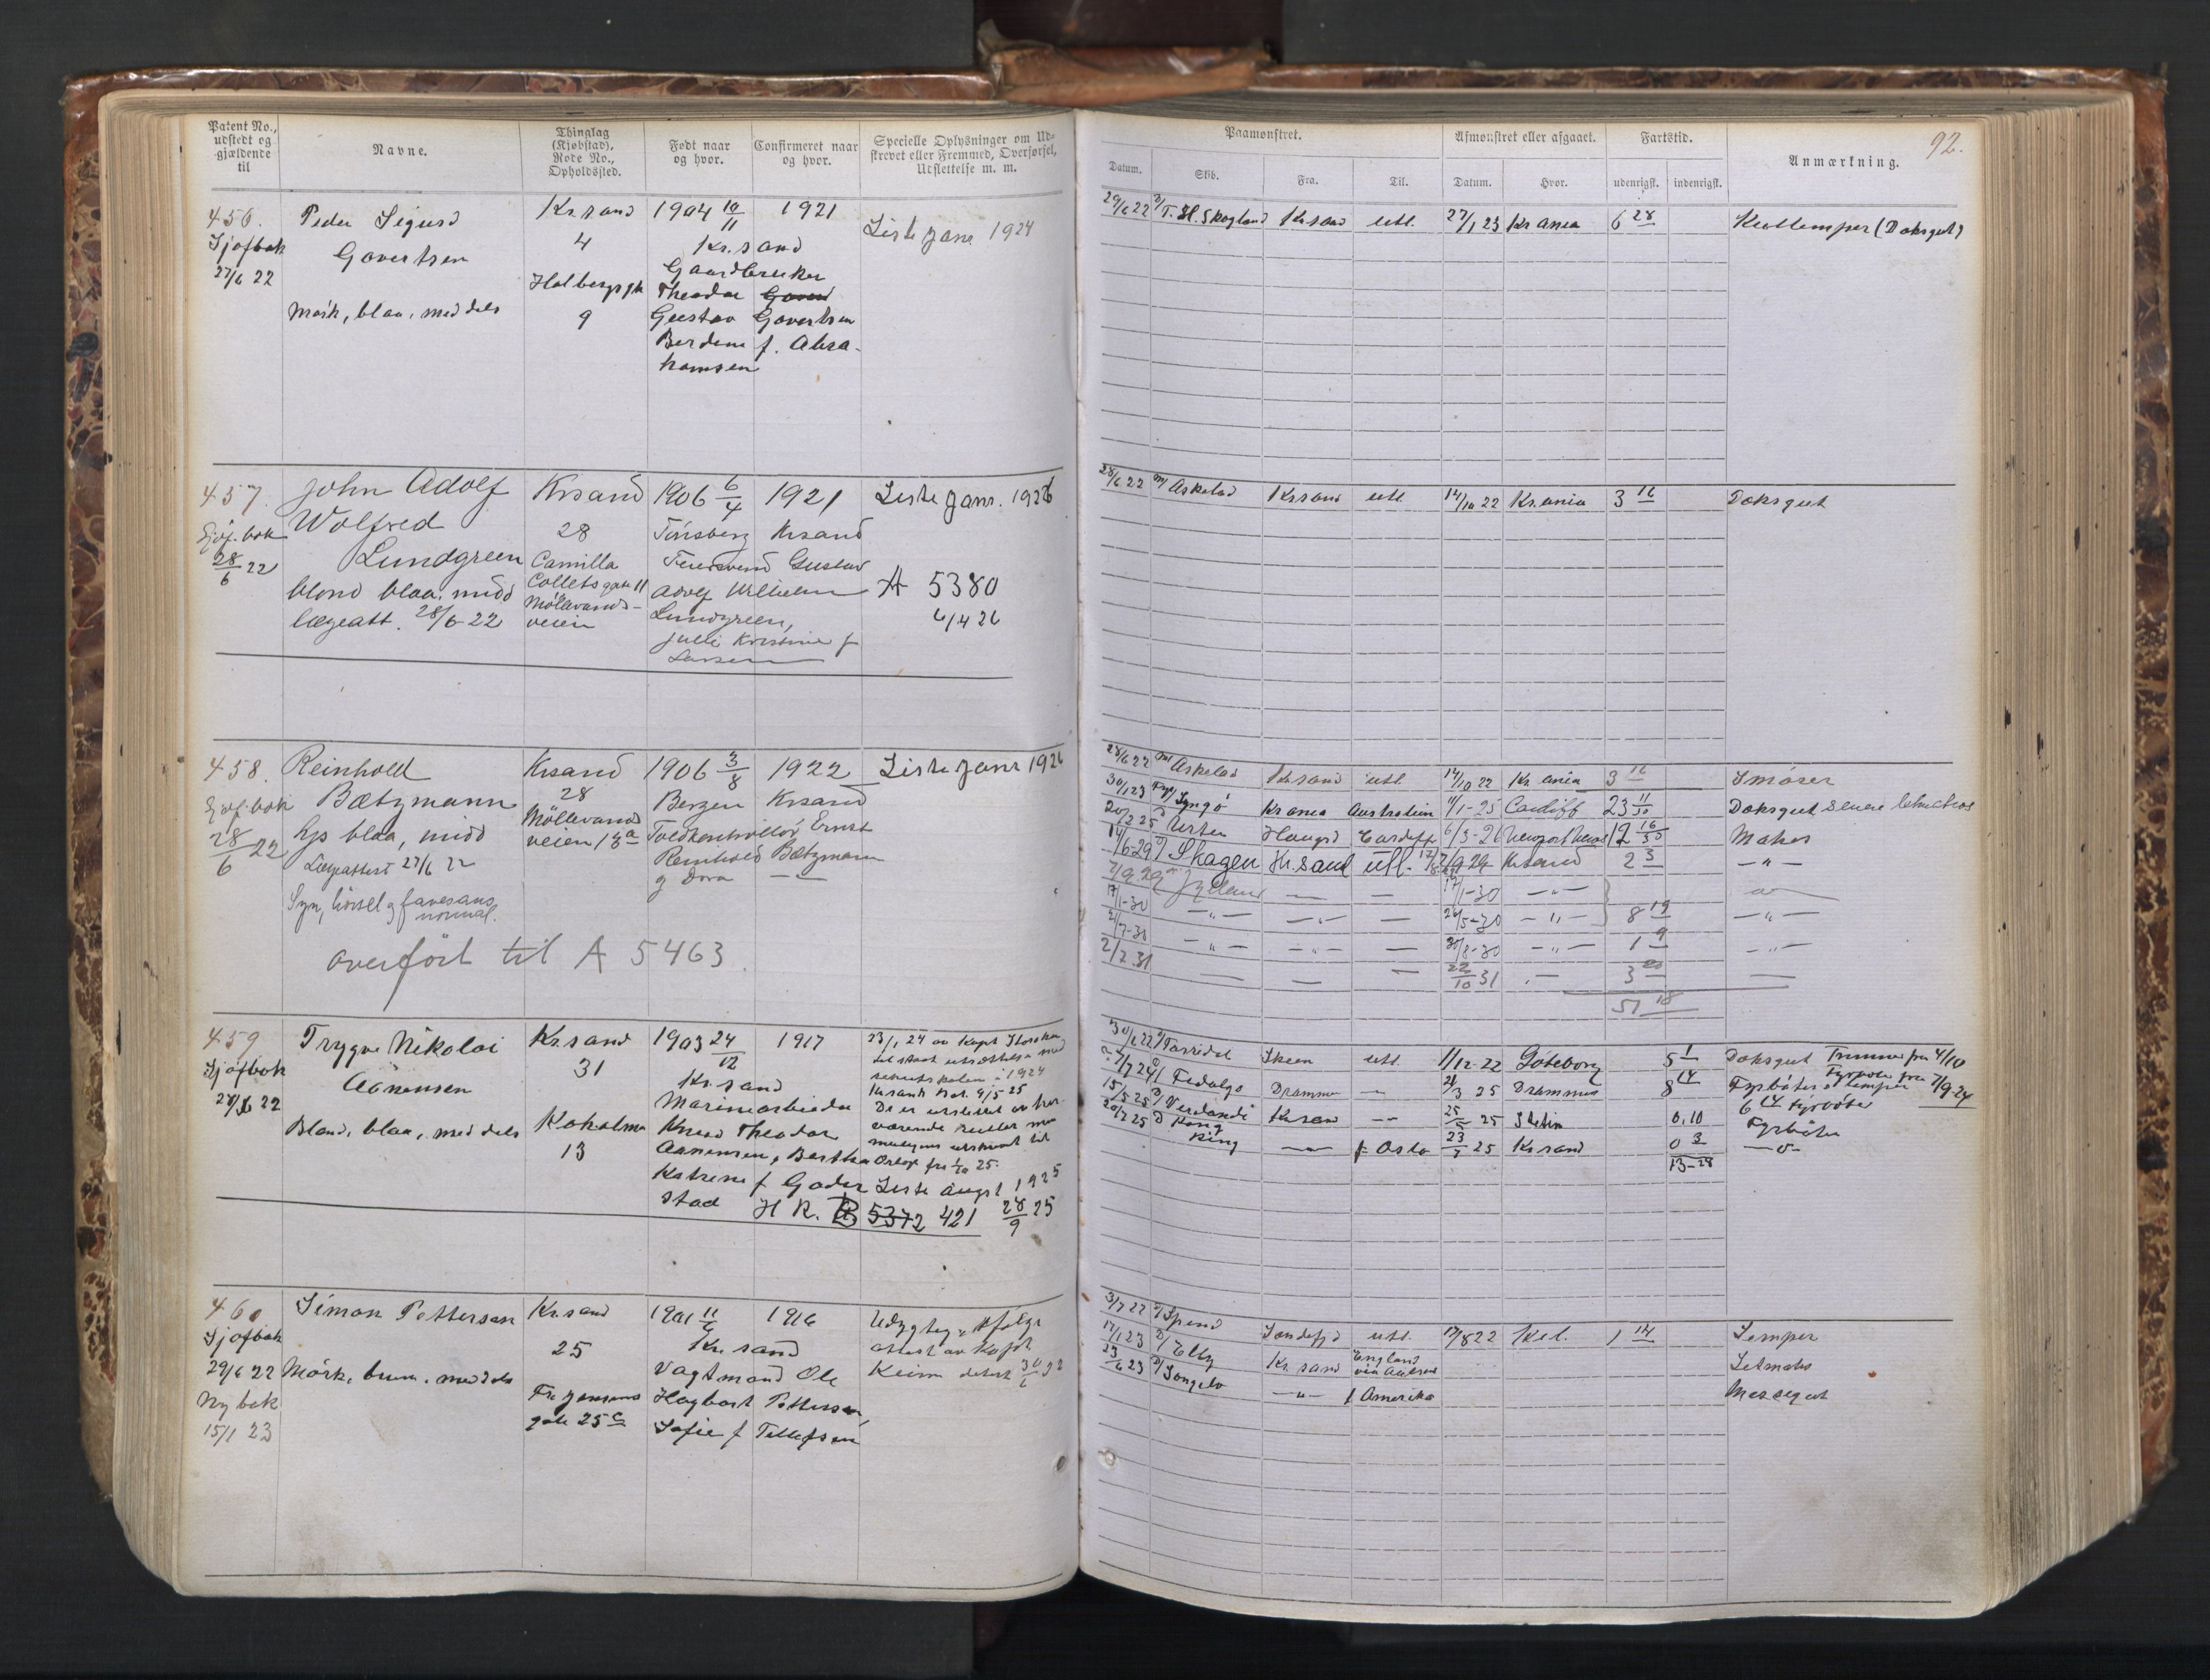 Patent No., udstedt og gjældende til
Navne.
Thinglag (Kjøbstad), Rode No., Opholdssted.
Født naar og hvor.
Confirmeret naar og hvor.
Specielle Oplysninger om Udskrevet eller Fremmed, Overførsel, Udslettelse m. m.
456.
Sjøfbok
27/6 22
Peder Sigurd
Govertsen
Mørk, blaa, middels
Kr.sand
4
Holbergsgt
9
1904 10/11 1921
Kr.sand
Gaardbruker
Theodor
Gustav Govertsen
Berdine f. Abra-
hamsen
Liste Janr 1924
457.
Sjøf.bok
28/6 22
John Adolf
Wolfred
Lundgreen
blond blaa, midd
lægeatt. 28/6 22
Krsand
28
Camilla
Colletsgate 11
Møllevands-
veien
1906 6/4 1921
Tønsberg Krsand
Gustav
Adolf Wilhelm
Lundgreen,
Julie Kristine f
Larsen
Liste Janr. 1926
A 5380
6/4 26
458.
Sjøf.bok
28/6 22
Reinholdt
Bætzmann
lys blaa, midd
Lægeattest 27/6 22
Syn, hørsel og farvesans
normal.
overført til A 5463
Krsand
28
Møllevands
veien 13a
1906 3/8 1922
Bergen Krsand
Toldkontrollør Ernst
Reinhold Bætzmann
og Dora — —
Liste Janr 1926
459
Sjøfbok
22
Trygve Nikolai
Aanensen
Blond, blaa, middels
Kr.sand
31
Kokolm
13
1903 24/12 1917
Kr.sand
Marinearbeider
Knud Theodor
Aanensen, Bertha
Katrine f Goder
stad
23/1 24 av Kapt
1924
Krsand Bat. 9/5 25
Liste Augst 1925
H R. B 5372 421 28/9 25
460
Sjøfbok
29/6 22
Ny bok
15/1 23
Simon Pettersen
Mørk, brun, middels
Kr.sand
25
Fr. Jensens
gate 25c
1901 11/6 1916
Kr.sand
Vagtmand Ole
Hagbart Pettersen,
Sofie f Tellefsen
Udygtig ifølge
attest av Kapt
Keim datert 30/6 22
92.
Paamønstret.
Afmønstret eller afgaaet.
Fartstid.
Anmærkning.
Datum. Skib. Fra. Til. Datum. Hvor. udenrigsk. indenrigsk.
29/6 22 D/ T. H. Skogland Krsand utl. 27/1 23 Krania 6 28 Kullemper (Doksgut)
28/6 22 m/ Askelad Krsand utl. 14/10 22 Kr.ania 3 16 Doksgut
28/6 22 m/ Askelad Krsand utl. 14/10 22 Kr.ania 3 16 Smører
30/1 23 Lyngø Krania Australien 11/1-25 Cardiff 23 11/30 Doksgut senere letmatros
20/2 25 D Ursten Haugsd Cardiff 6/3-26 Newport 12 16/30 Matros
14/6-29 D/ Skagen Kr.sand utl. 7/9 29 Krsand 2 3 — „ —
7/9 29 Jylland — — 17/1-30 — „ —
17/1-30 — „ — — „ — — 26/5-30 — „ — 8 19 — „ —
2/7-30 — „ — — „ — — 30/8-30 — „ — 1 9 — „ —
2/7 31 — — — 22/10 31 — 3 20 —
51 18
30/6 22 D/ Torridal Skien utl. 1/12-22 Göteborg 5 1 Doksgut Trimmer fra 4/10
7/7 24 D/ Fidelgo Drammen — 21/3 25 Drammen 8 14 Fyrbøter o lemper Fyrbøter fra 7/9-24
6 14 fyrbøter
15/5 25 D/ Verdandi Krsan — 25/5 25 Stetin 0,10 Fyrbøter
20/7 25 D Kong
Ring — f. Oslo 23/7 25 Krsand 0 3 — o —
13-28
3/7 22 D/ Spind Sandefjd utl. 17/8 22 Kiel. 1 14 Lemper
17/1 23 D/ Elby Kr.sand England Letmatros
23/6 23 D/ Songelv — „ — f Amerika Messegut